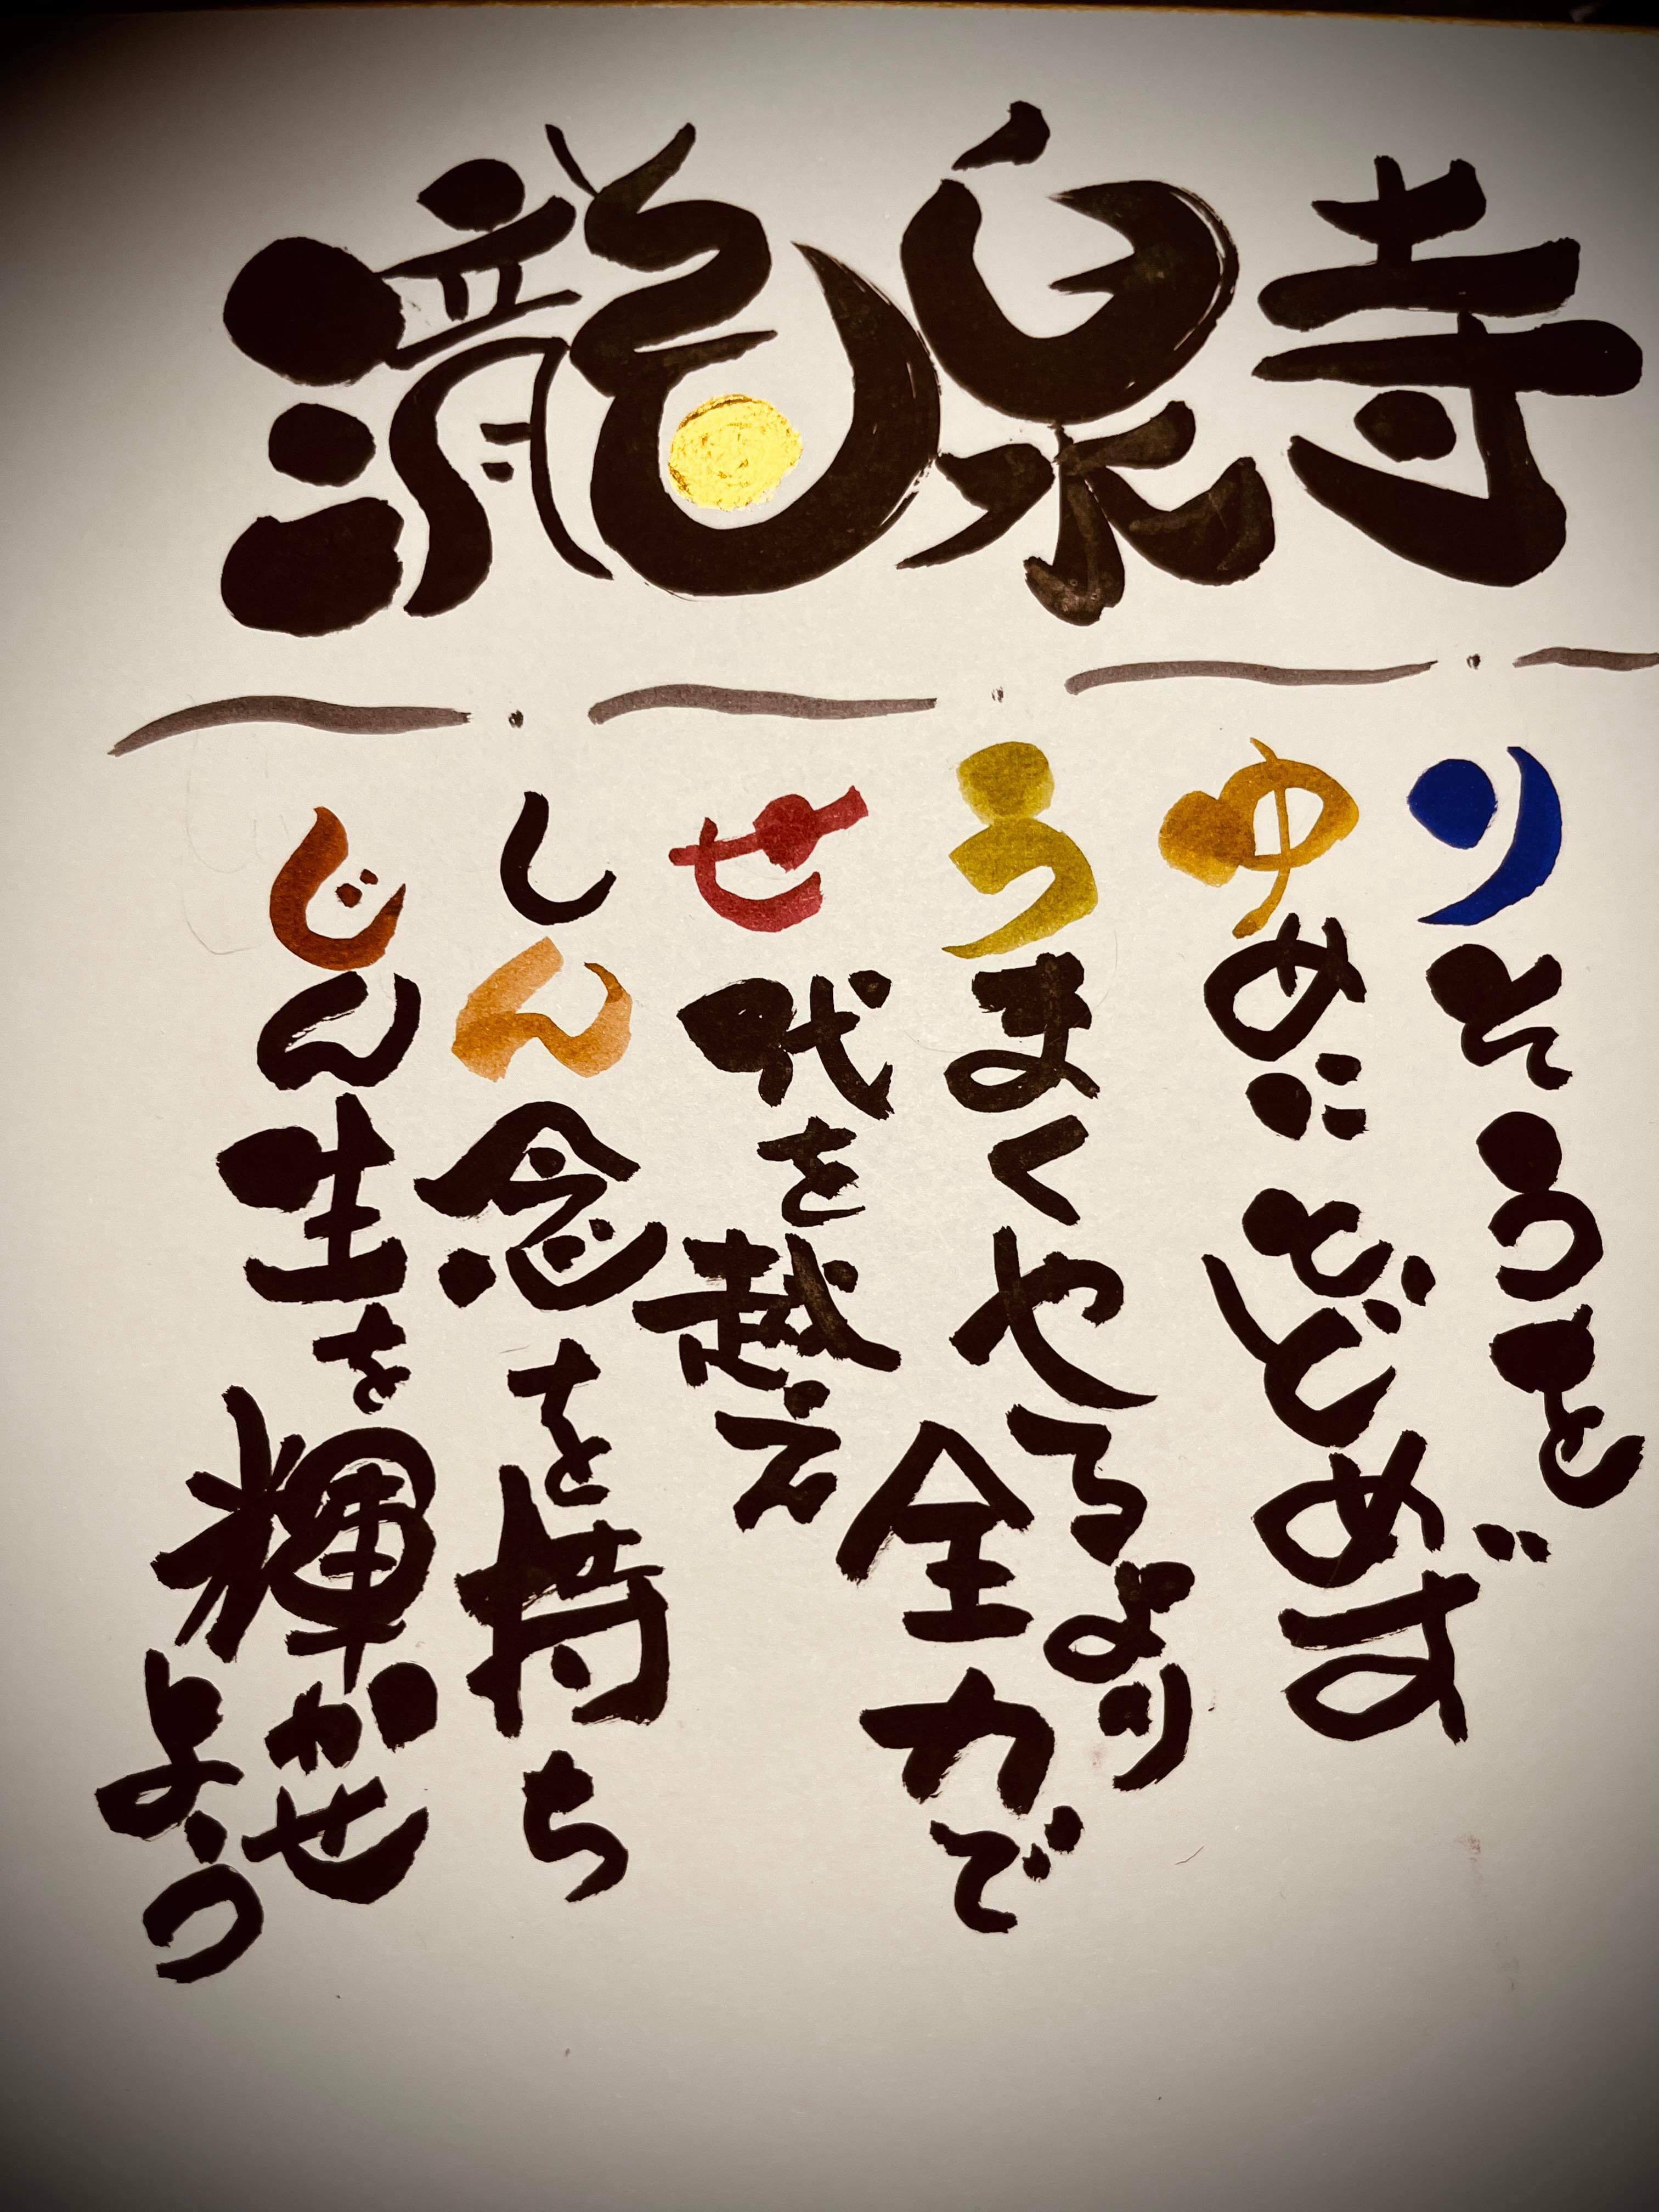 瀧泉寺
りそうを
ゆめにとどめず
うまくやるより全力で
せ代を越え
しん念を持ち
じん生を輝かせよう